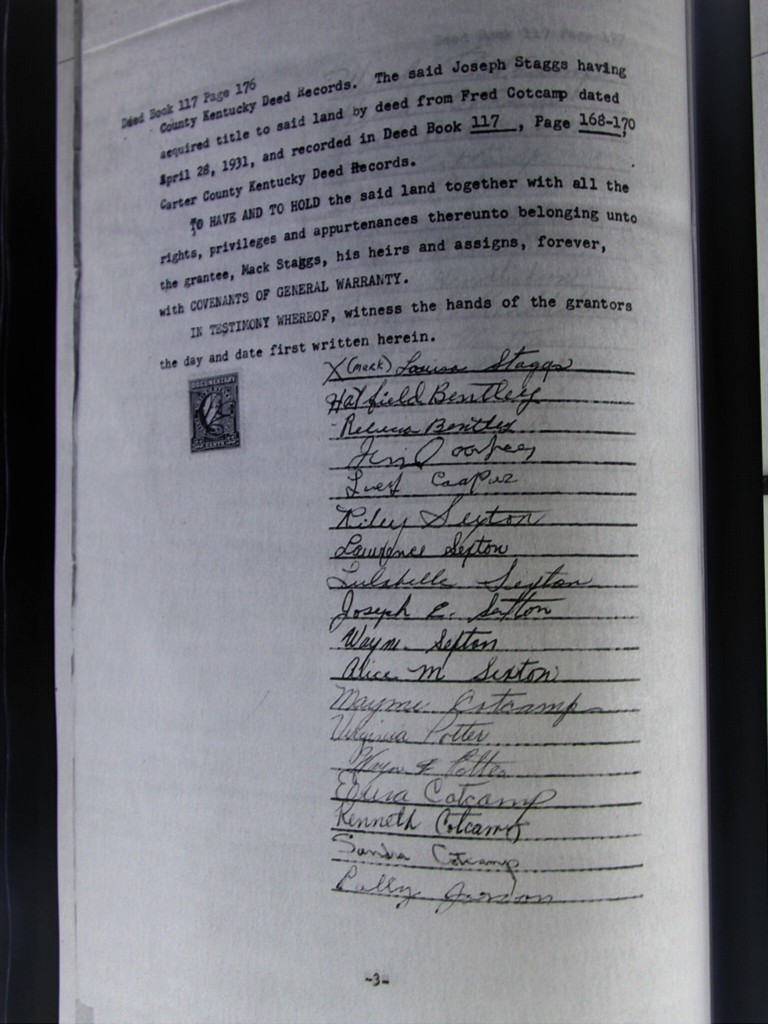 Deed Book 117 Page 176
County Kentucky Deed Records. The said Joseph Staggs having
acquired title to said land by deed from Fred Cotcamp dated
April 28, 1931, and recorded in Deed Book 117, Page 168-170
Carter County Kentucky Deed Records.
TO HAVE AND TO HOLD the said land together with all the
rights, privileges and appurtenances thereunto belonging unto
the grantee, Mack Staggs, his heirs and assigns, forever,
with COVENANTS OF GENERAL WARRANTY.
IN TESTIMONY WHEREOF, witness the hands of the grantors
the day and date first written herein.
X (mark) Louisa Staggs
DOCUMENTARY
Hatfield Bentley
CENTS
Rebecca Bentley
Jim
Riley Sexton
Lawrence Sexton
Lulabelle Sexton
Joseph E. Sexton
Wayne Sexton
Alice M Sexton
Mayme Cotcamp
Virginia Potter
Potter
Cotcamp
Kenneth Cotcamp
Sandra Cotcamp
-3-